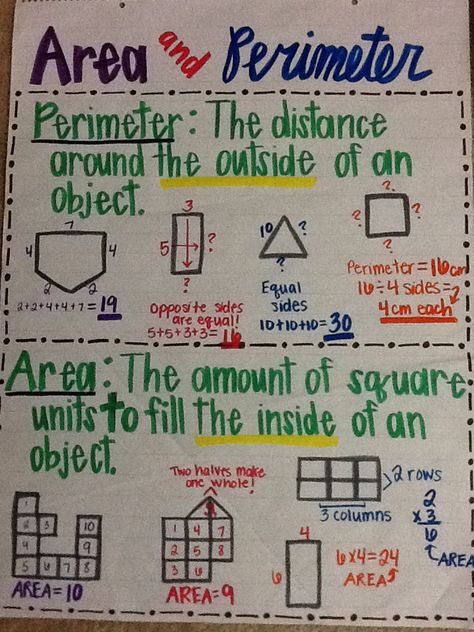 Area and Perimeter
Perimeter: The distance
around the outside of an
object.
7
4 4
2 2
2+2+4+4+7=19
3
5 ?
?
Opposite sides
are equal!
5+5+3+3=16
10 ?
?
Equal
sides
10+10+10=30
?
? ?
?
Perimeter=16cm
16÷4 sides=
4cm each
Area: The amount of square
units to fill the inside of an
object.
1
2 3 10
4 9
5 6 7 8
AREA=10
Two halves make
one whole!
1 4 7
2 5 8
3 6
AREA=9
2 rows
3 columns
2
x3
6
AREA
4
6
6x4=24
AREA